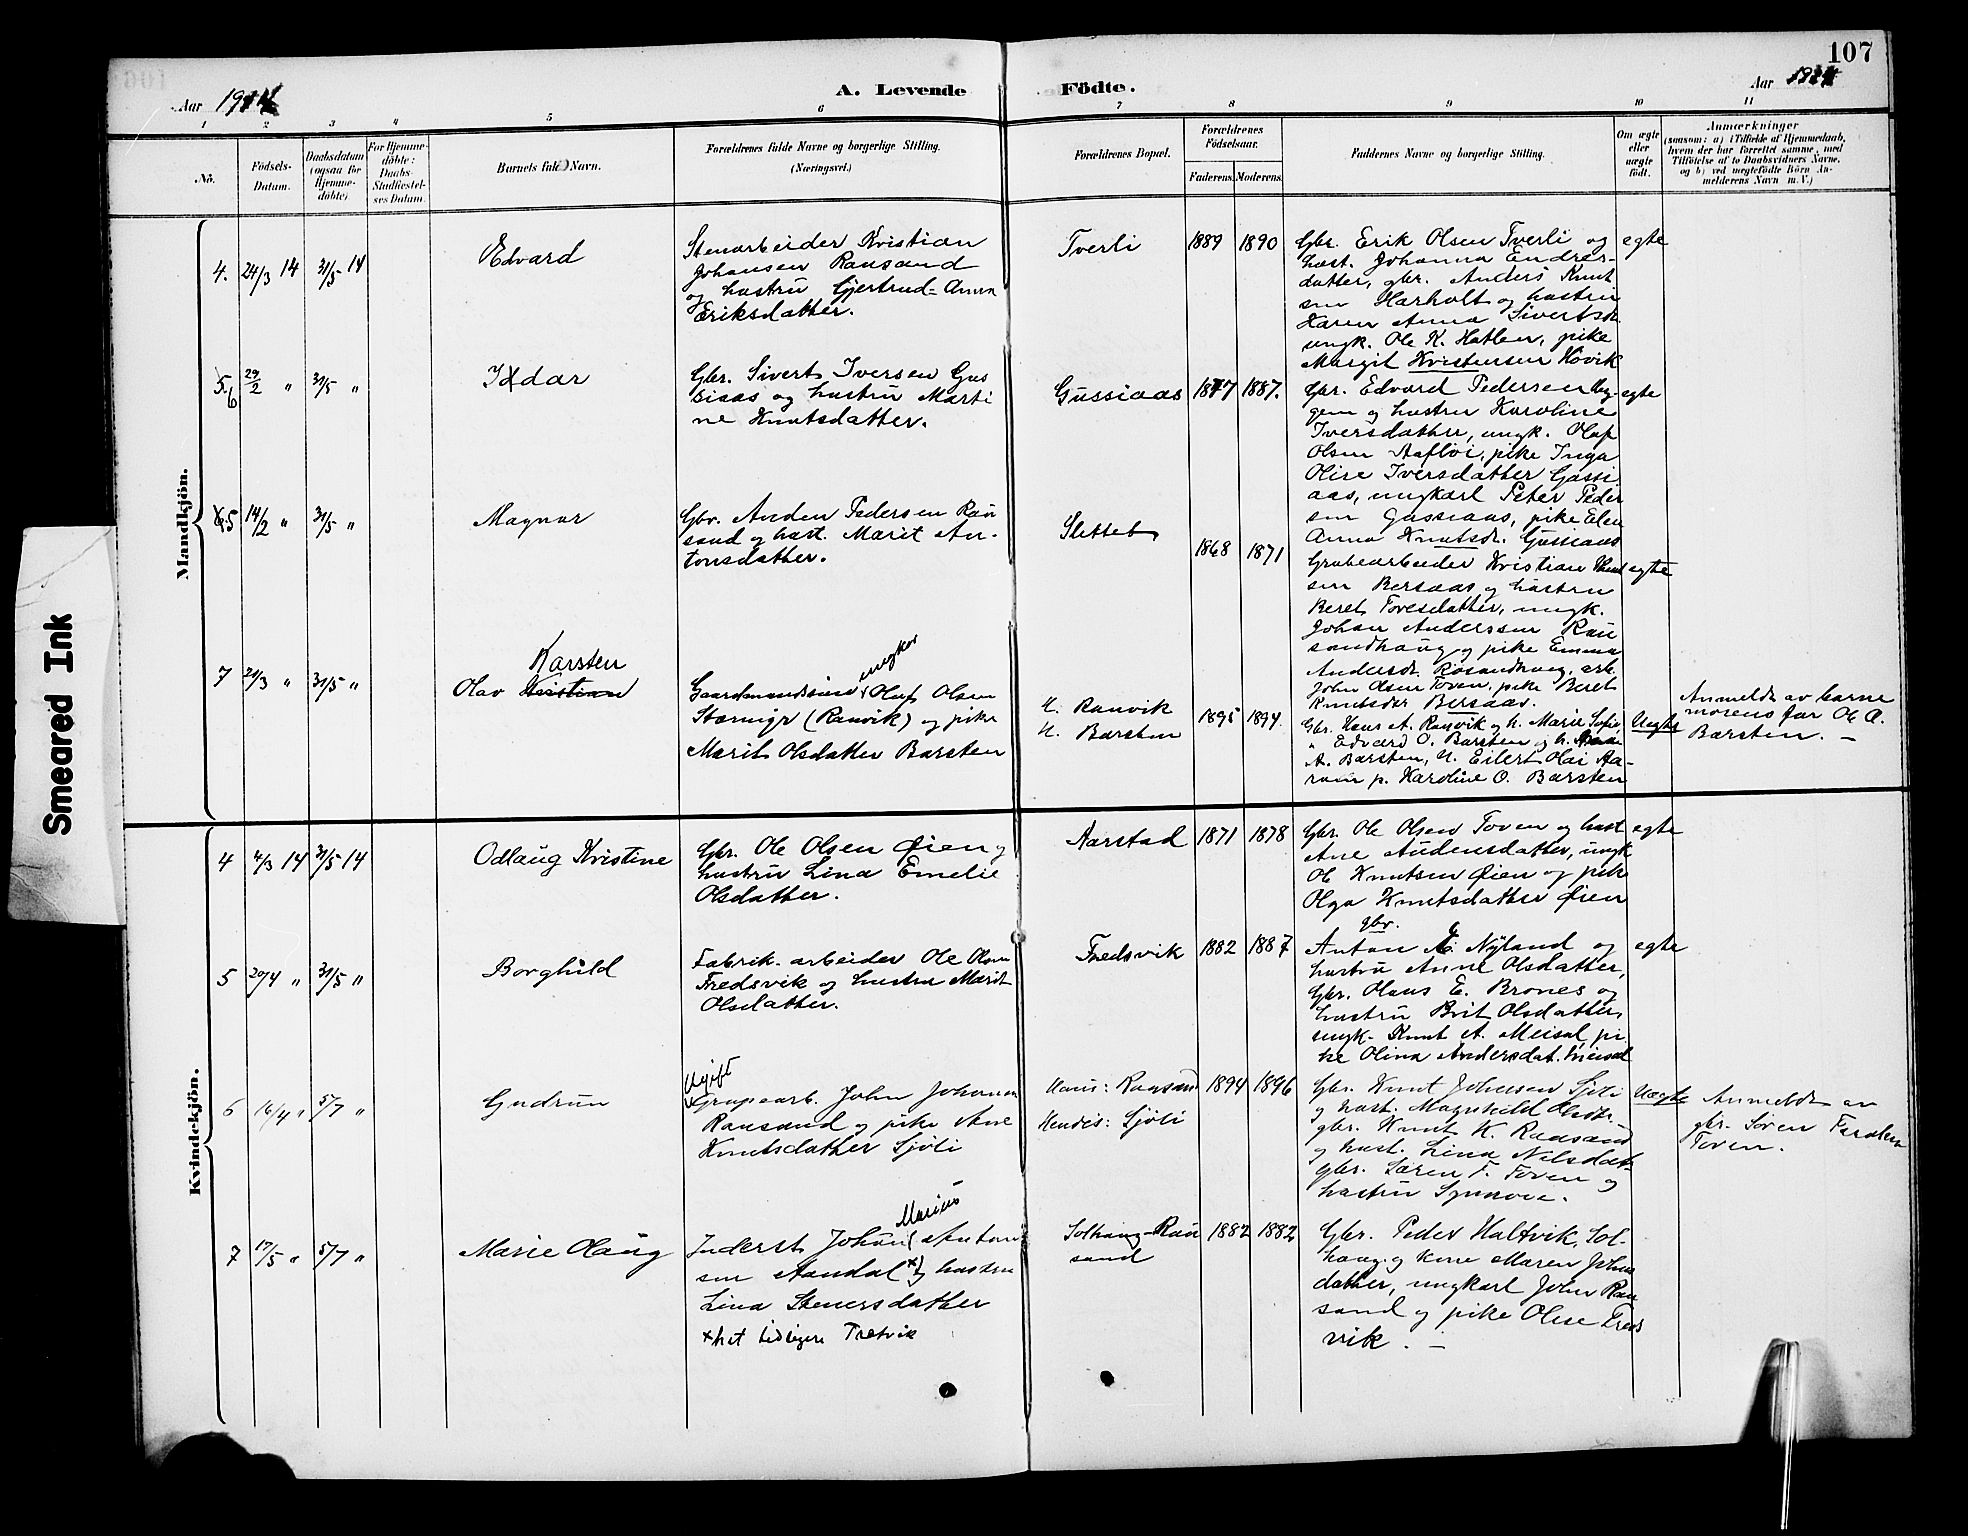 107
Aar 1914
A. Levende Födte.
Aar 1914
1 2 3 4 5 6 7 8 9 10 11
No.
Födsels-
Datum.
Daabsdatum
(ogsaa for
Hjemme-
döbte).
For Hjemme-
döbte:
Daabs-
Stadfæstel-
ses Datum.
Barnets fulde Navn.
Forældrenes fulde Navne og borgerlige Stilling.
(Næringsvei.)
Forældrenes Bopæl.
Forældrenes
Födselsaar.
Faderens. Moderens.
Faddernes Navne og borgerlige Stilling.
Om ægte
eller
uægte
födt.
Anmærkninger
(saasom: a) i Tilfælde af Hjemmedaab,
hvem der har forrettet samme, med
Tilföielse af to Daabsvidners Navne,
og b) ved uægtefödte Börn An-
melderens Navn m. V.)
Mandkjön.
4. 24/3 14 31/5 14
Edvard
Stenarbeider Kristian
Johansen Rausand
og hustru Gjertrud-Anna
Eriksdatter.
Tverli
1889 1890
Gbr. Erik Olsen Tverli og
hust. Johanna Endres-
datter, gbr. Anders Knut
sen Harholt og hustru
Karen Anna Sivertsdr.
ungk. Ole K. Hatlen, pike
Margit Kristensen Hovik
egte
5. 6 29/2 " 31/5 "
Ildar
Gbr. Sivert Iversen Gus
siaas og hustru Marti
ne Knutsdatter.
Gussiaas
1877 1887.
Gbr. Edvard Pedersen
gem og hustru Karoline
Iversdatter, ungk. Olaf
Olsen Aafløi, pike Inga
Olise Iversdatter Gussi
aas, ungkarl Peter Peder
sen Gussiaas, pike Elen
Anna Knutsdr. Gussiaas
egte
6. 5 14/2 " 31/5 "
Magnar
Gbr. Anden Pedersen Rau
sand og hust. Marit An-
tonsdatter.
Slettet
1868 1871
Grubearbeider Kristian Knut
sen Bersaas og hustru
Beret Toresdatter, ungk.
Johan Anderssen Rau
sandhaug og pike Emma
Andersdr. Rosandhaug, arb.
John Olsen Toven, pike Beret
Knutsdtr Bersaas.
egte
7 21/3 " 31/5 "
Karsten
Olav Kristian
ungkar
Gaardmandssøn Olaf Olsen
(Ranvik) og pike
Marit Olsdatter Barsten
H. Ranvik
H. Barsten
1895 1894.
Gbr. Hans A. Ranvik og h. Marie Sofie,
" Edvard O. Barsten og h.
A. Barsten, U. Eilert Olai Aa-
ram p. Karoline O. Barsten
Uegte
Anmeldt av barne
morens far Ole A.
Barsten. —
Kvindekjön.
4 4/3 14 31/5 14
Odlaug Kristine
Gbr. Ole Olsen Øien og
hustru Lina Emelie
Olsdatter.
Aarstad
1871 1878
Gbr. Ole Olsen Toven og hust
Ane Audensdatter, ungk
Ole Knutsen Øien og pike
Olga Knutsdatter Øien
egte
5 20/4 " 31/5 "
Borghild
Fabrik-arbeider Ole Olsen
Fredsvik og hustru Marit
Olsdatter.
Fredsvik
1882 1887
gbr.
Anton Nyland og
hustru Anne Olsdatter,
Gbr. Olaus E. Brones og
hustru Brit Olsdatter,
ungk. Knut A. Meisal, pi
ke Olina Andersdat. Meisal
egte
6 16/4 " 5/7 "
Gudrun
Ugift
Grupearb. John Johansen
Rausand og pike Ane
Knutsdatter Sjöli
Hans: Rausand
Hendes: Sjöli
1894 1896
Gbr. Knut Johnsen Sjöli
og hust. Magnhild Olsdtr.
gbr. Knut K. Rausand
og hust. Lina Nilsdat
gbr. Søren F. Toven og
hustru Synnove.
Uegte
Anmeldt av
gbr. Søren
Toven.
7 17/5 " 5/7 "
Marie Olaug
Marius
Inderst Johan Anton
sen Aandal x) og hustru
Lina Stenersdatter
x het tidligere Trævik
Solhaug-Rau
sand
1882 1882
Gbr. Peder Haltvik, Sol-
haug og kone Maren Johns
datter, ungkarl John Rau
sand og pike Olise Freds
vik. —
Smeared Ink